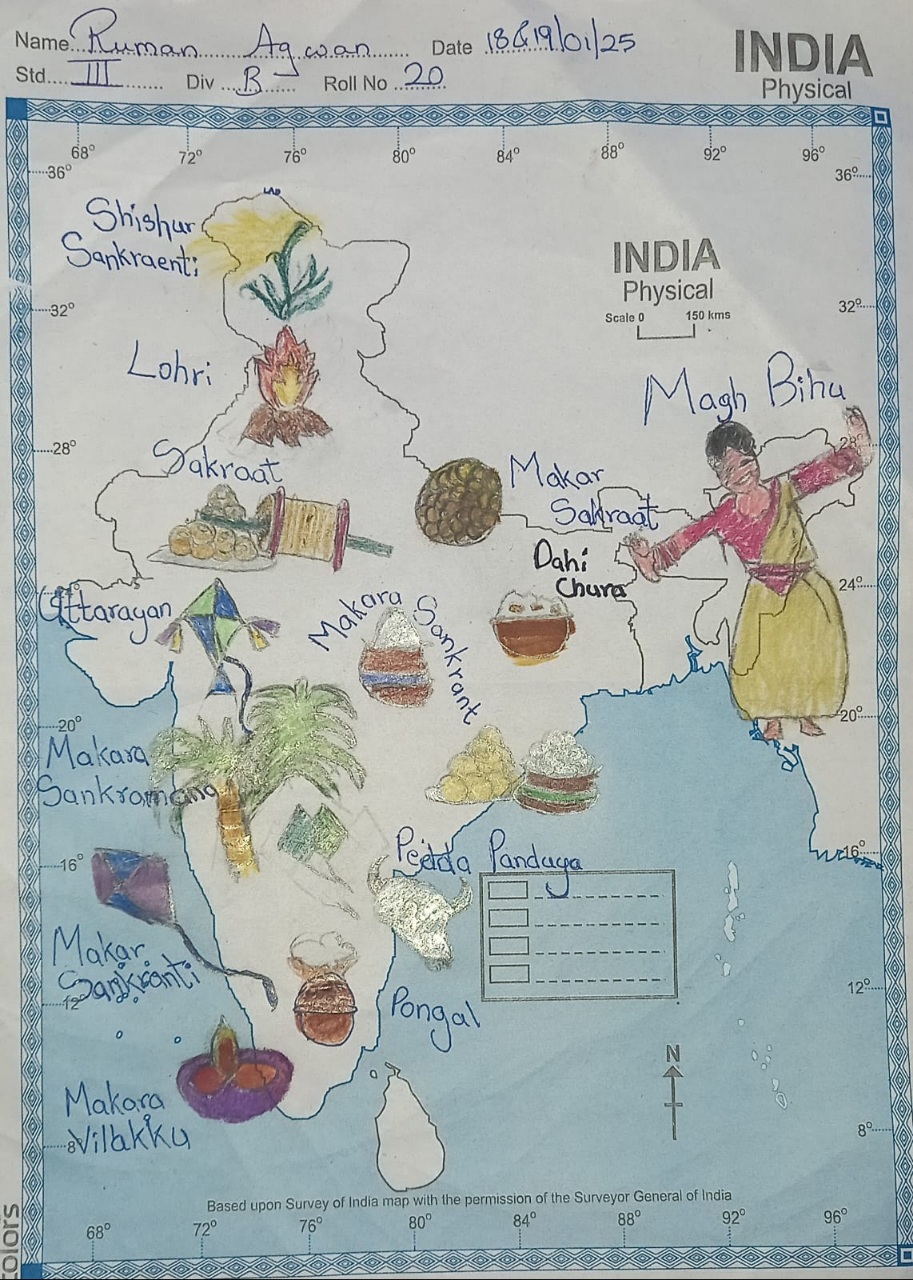 Name Ruman Agwan Date 18&19/01/25
Std. III Div B Roll No 20
INDIA
Physical
68° 72° 76° 80° 84° 88° 92° 96°
36° 36°
Shishur
Sankraenti
INDIA
Physical
Scale 0 150 kms
32° 32°
Lohri
Magh Bihu
28° 28°
Sakraat
Makar
Sakraat
Dahi
Chura
24°
Uttarayan
Makara Sankrant
20° 20°
Makara
Sankramana
16° 16°
Pedda Panduga
Makar
Sankranti
12° 12°
Pongal
N
Makara
Vilakku
8° 8°
Based upon Survey of India map with the permission of the Surveyor General of India
68° 72° 76° 80° 84° 88° 92° 96°